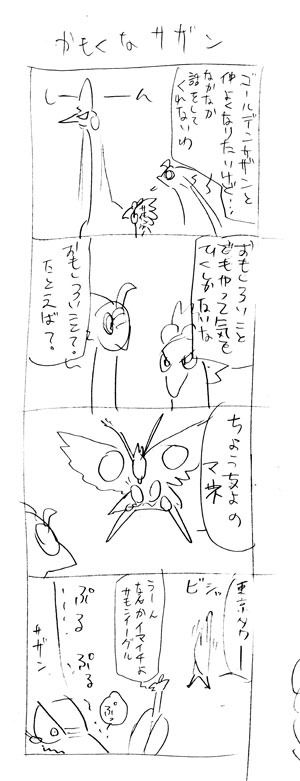 かもくなサザン
ゴールデンサザンと
仲よくなりたいけど…
なかなか
話をして
くれないわ
しーーん
おもしろいこと
でもやって気を
ひくしかないな
おもしろいことて?
たとえば?
ちょうちょの
マネ
東京タワー
ビシャ
うーん
なんかイマイチよ
サモンイーグル
ぷっ
ぷる ぷる
サザン